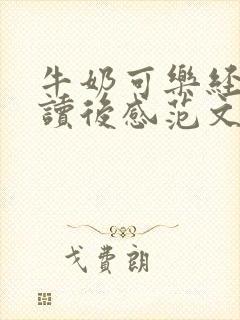 牛奶可樂經
讀後感范文
戈費朗